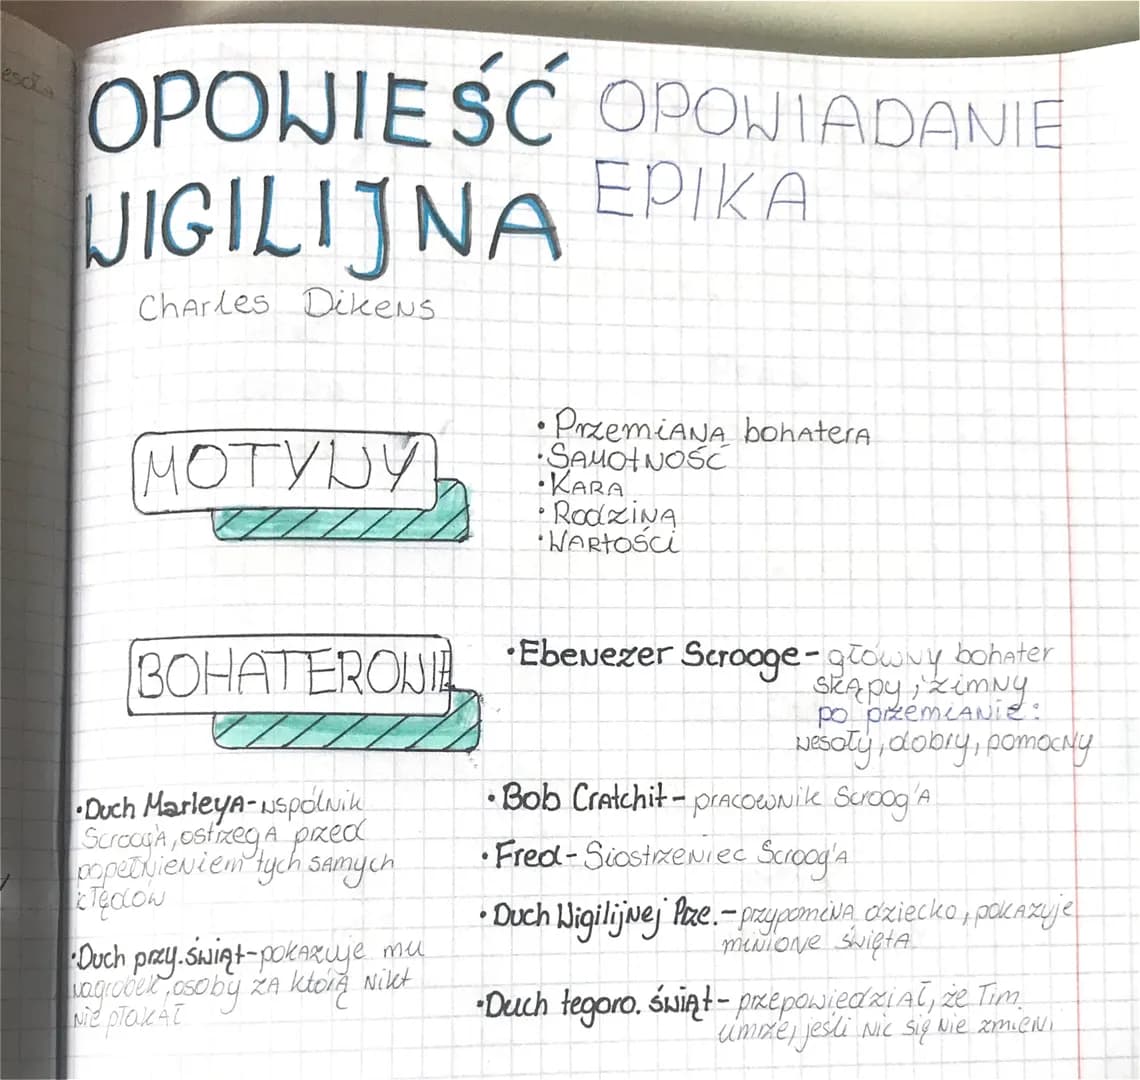 OPOWIEŚĆ
WIGILIJNA
OPOWIADANIE
EPIKA
Charles Dikens
MOTYWY
• Przemiana bohatera
• Samotność
• Kara
• Rodzina
• Wartości
BOHATEROWIE
• Ebenezer Scrooge - główny bohater
skąpy, zimny
po przemianie:
wesoły, dobry, pomocny
• Bob Cratchit - pracownik Scroog'a
• Fred - Siostrzeniec Scroog'a
• Duch Wigilijnej Prze. - przypomina dziecko, pokazuje
minione święta
• Duch tegoro. świąt - przepowiedział, że Tim
umrze, jeśli nic się nie zmieni
• Duch Marleya - wspólnik
Scroog'a, ostrzega przed
popełnieniem tych samych
błędów
• Duch przy. świąt - pokazuje mu
nagrobek, osoby za którą nikt
nie płakał